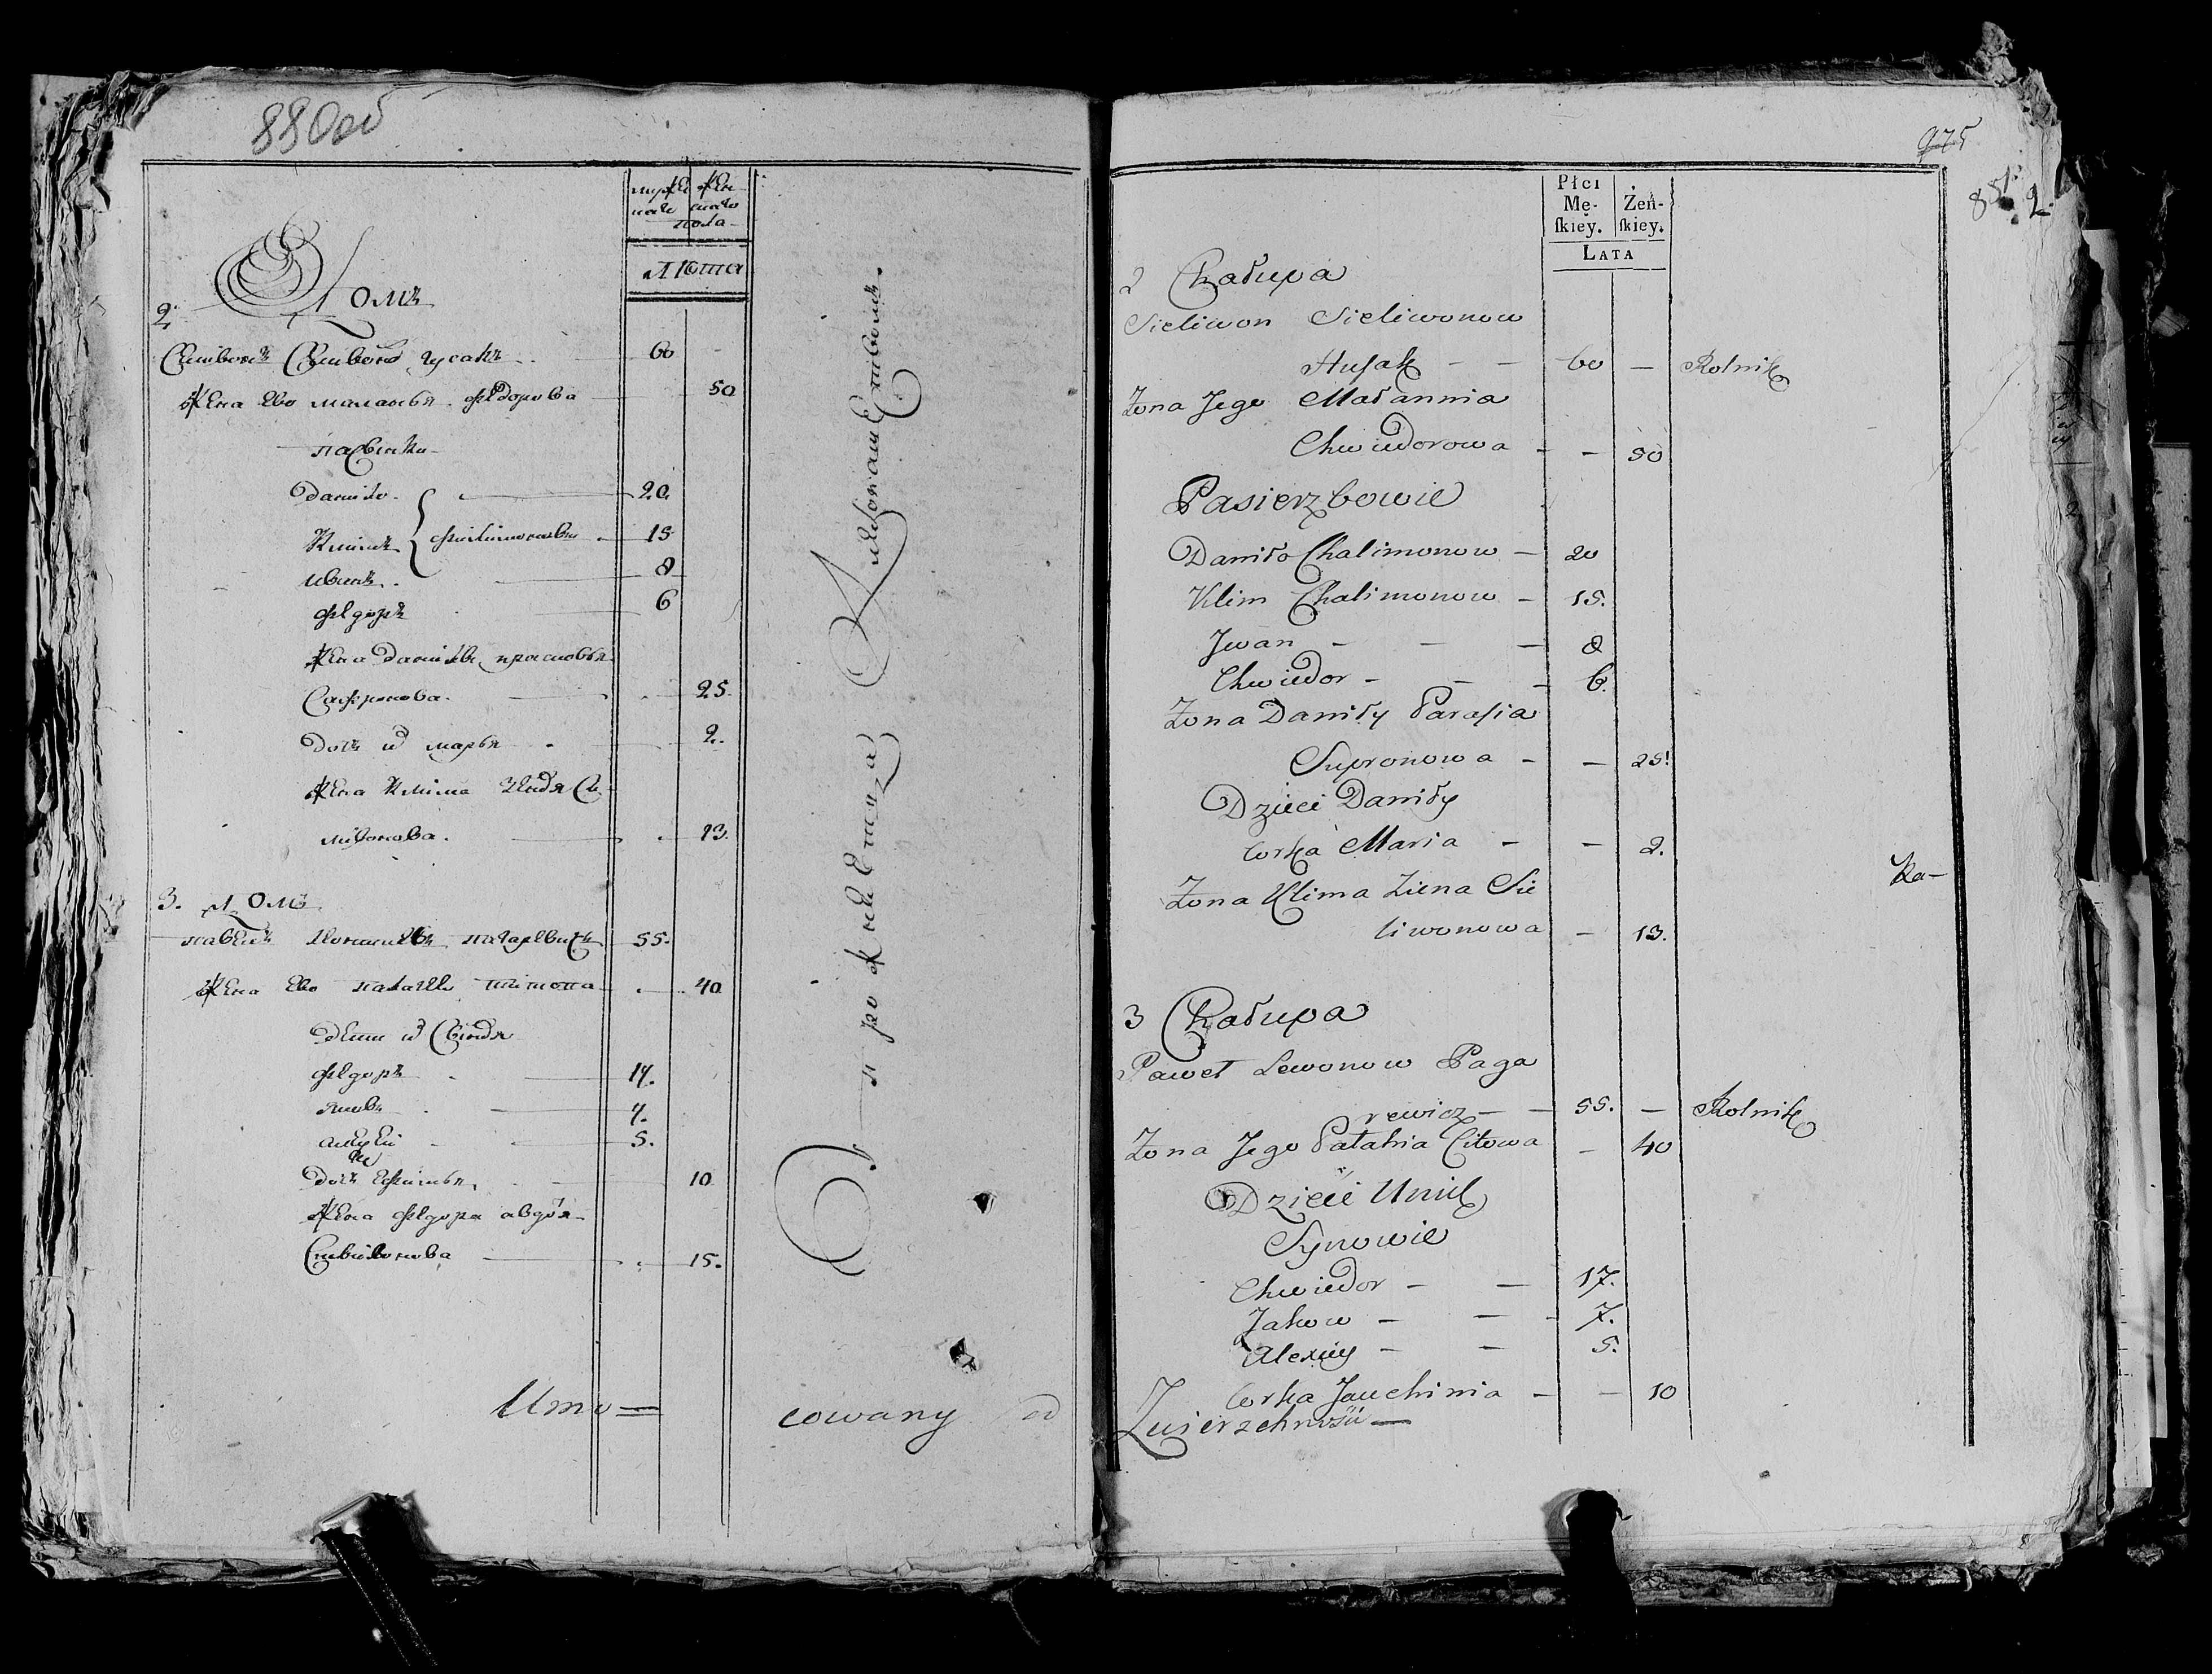 880 об
мужеска женска
пола
Лета
2. Домъ
Селивонъ Селивонов гусакъ 60
жена Ево маланья федорова 50
пасынки
Данило 20
Климъ филимоновы 15
иванъ 8
федоръ 6
жена Данилы прасковья
Сафронова 25
дочь марья 2
жена Клима Зеновя Се
ливонова 13.
3. Домъ
павелъ Левоновъ пагаревичъ 55.
жена Ево палагея титова 40
федоръ 17.
яковъ 7.
алексей 5.
дочь Ефимья 10
жена федора авдотья
Селивонова 15.
Umo=
cowany od
975
851. 2.
Płci
Mę- Żeń-
ſkiey. ſkiey.
LATA
2 Chałupa
Sieliwon Sieliwonow
Husak — — 60 — Rolnik
Żona Jego Małannia
Chwiedorowa - - 50
Pasierzbowie
Daniło Chalimonow — 20
Klim Chalimonow — 15.
Jwan — — — 8
Chwiedor — — — 6.
Żona Daniły Parasia
Supronowa — — 25.
Dzieci Daniły
Corka Maria — — 2.
Żona Klima Ziena Sie
liwonowa — 13.
Ka—
3 Chałupa
Paweł Lewonow Paga
rewicz — — 55. — Rolnik
Żona Jego Pałahia Citowa — 40
Dzieci Unich
Synowie
Chwiedor — — 17.
Jakow — — - 7.
Alexiey — — 5.
Corka Jauchimia — — 10
Zwierzchności —